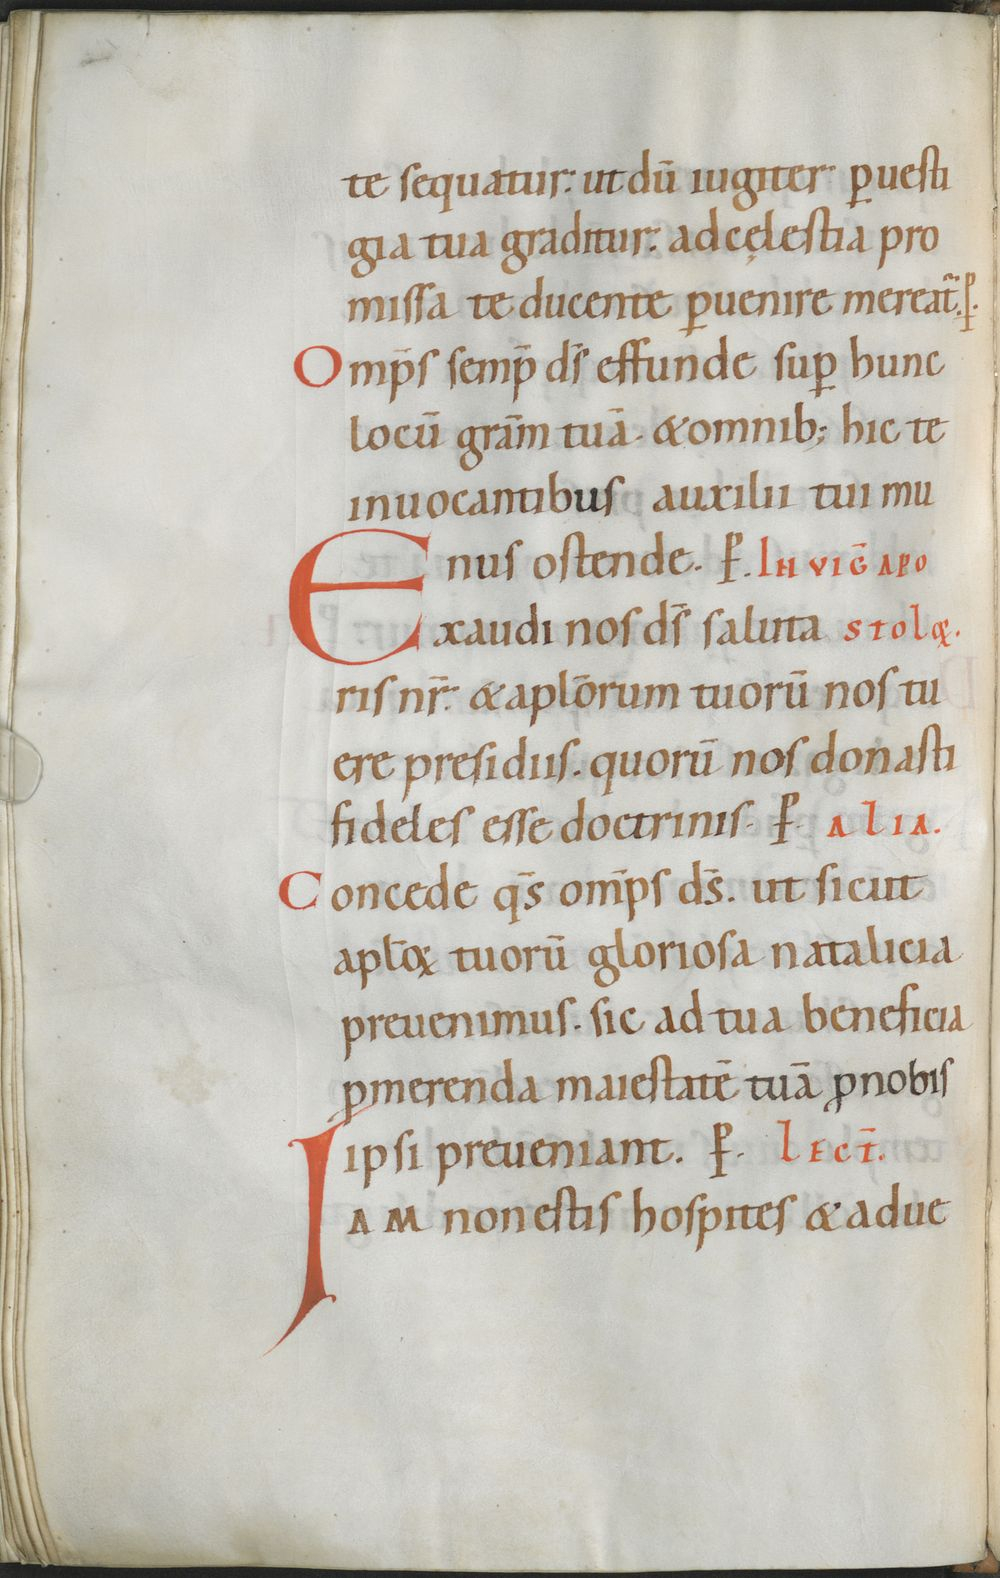 te sequatur: ut dū iugiter p̱uesti
gia tua graditur: ad cęlestia pro
missa te ducente p̱uenire mereat̄. P̱.
Omp̄s semp̱ d̄s effunde sup̱ hunc
locū grām tuā. &omnib; hic te
inuocantibus auxilii tui mu
nus ostende. P̱. IN VIḠ APO
Exaudi nos d̄s saluta STOLOꝜ.
ris nr̄. &apl̄orum tuorū nos tu
ere presidiis. quorū nos donasti
fideles esse doctrinis. P̱. ALIA.
Concede q̄s omp̄s d̄s. ut sicut
apl̄oꝝ tuorū gloriosa natalicia
preuenimus. sic ad tua beneficia
p̱merenda maiestatē tuā ꝓnobis
ipsi preueniant. P̱. LECT̄.
IAM non estis hospites &adue